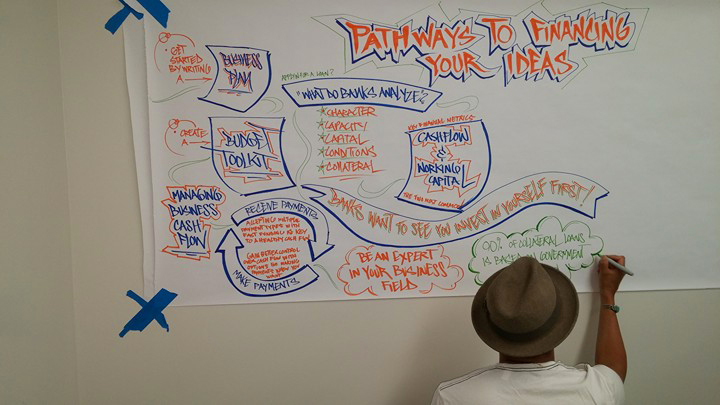 PATHWAYS TO FINANCING
YOUR IDEAS
GET
STARTED
BY WRITING
A
BUSINESS
PLAN
APPLY FOR A LOAN?
"WHAT DO BANKS ANALYZE?"
CHARACTER
CAPACITY
CAPITAL
CONDITIONS
COLLATERAL
KEY FINANCIAL METRICS
CASHFLOW
&
WORKING
CAPITAL
THE TWO MOST COMMON
CREATE
A
BUDGET
TOOLKIT
MANAGING
BUSINESS
CASH
FLOW
RECEIVE PAYMENTS
ACCEPTING MULTIPLE
PAYMENT TYPES WITH
FAST FUNDING IS KEY
TO A HEALTHY CASH FLOW
GAIN BETTER CONTROL
OVER CASH FLOW WITH
OPTIONS FOR MAKING
PAYMENTS WHEN YOU
MAKE PAYMENTS
BANKS WANT TO SEE YOU INVEST IN YOURSELF FIRST!
BE AN EXPERT
IN YOUR BUSINESS
FIELD
90% OF COLLATERAL LOANS
IS BASED ON GOVERNMENT